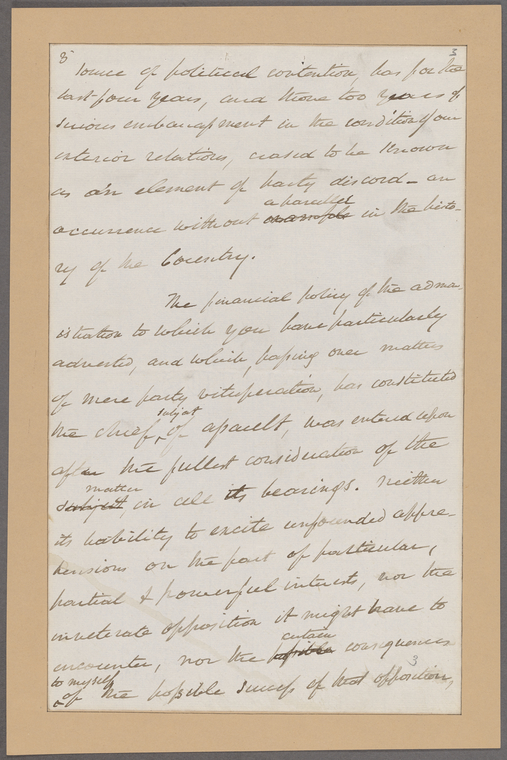 8 3
source of political contention, has for the
last four years, and those too years of
serious embarrassment in the condition of our
interior relations, ceased to be known
as an element of party discord - an
a parallel
occurrence without an example in the histo-
ry of the Country.
The financial policy of the admin-
istration to which you have particularly
adverted, and which, passing over matters
of mere party vituperation, has constituted
subject
the chief, of assault, was entered upon
after the fullest consideration of the
matter
subject in all its bearings. Neither
its liability to excite unfounded appre-
hensions on the part of particular,
partial & powerful interests, nor the
inveterate opposition it might have to
certain
encounter, nor the possible consequences
to myself
of the possible success of that opposition,
3